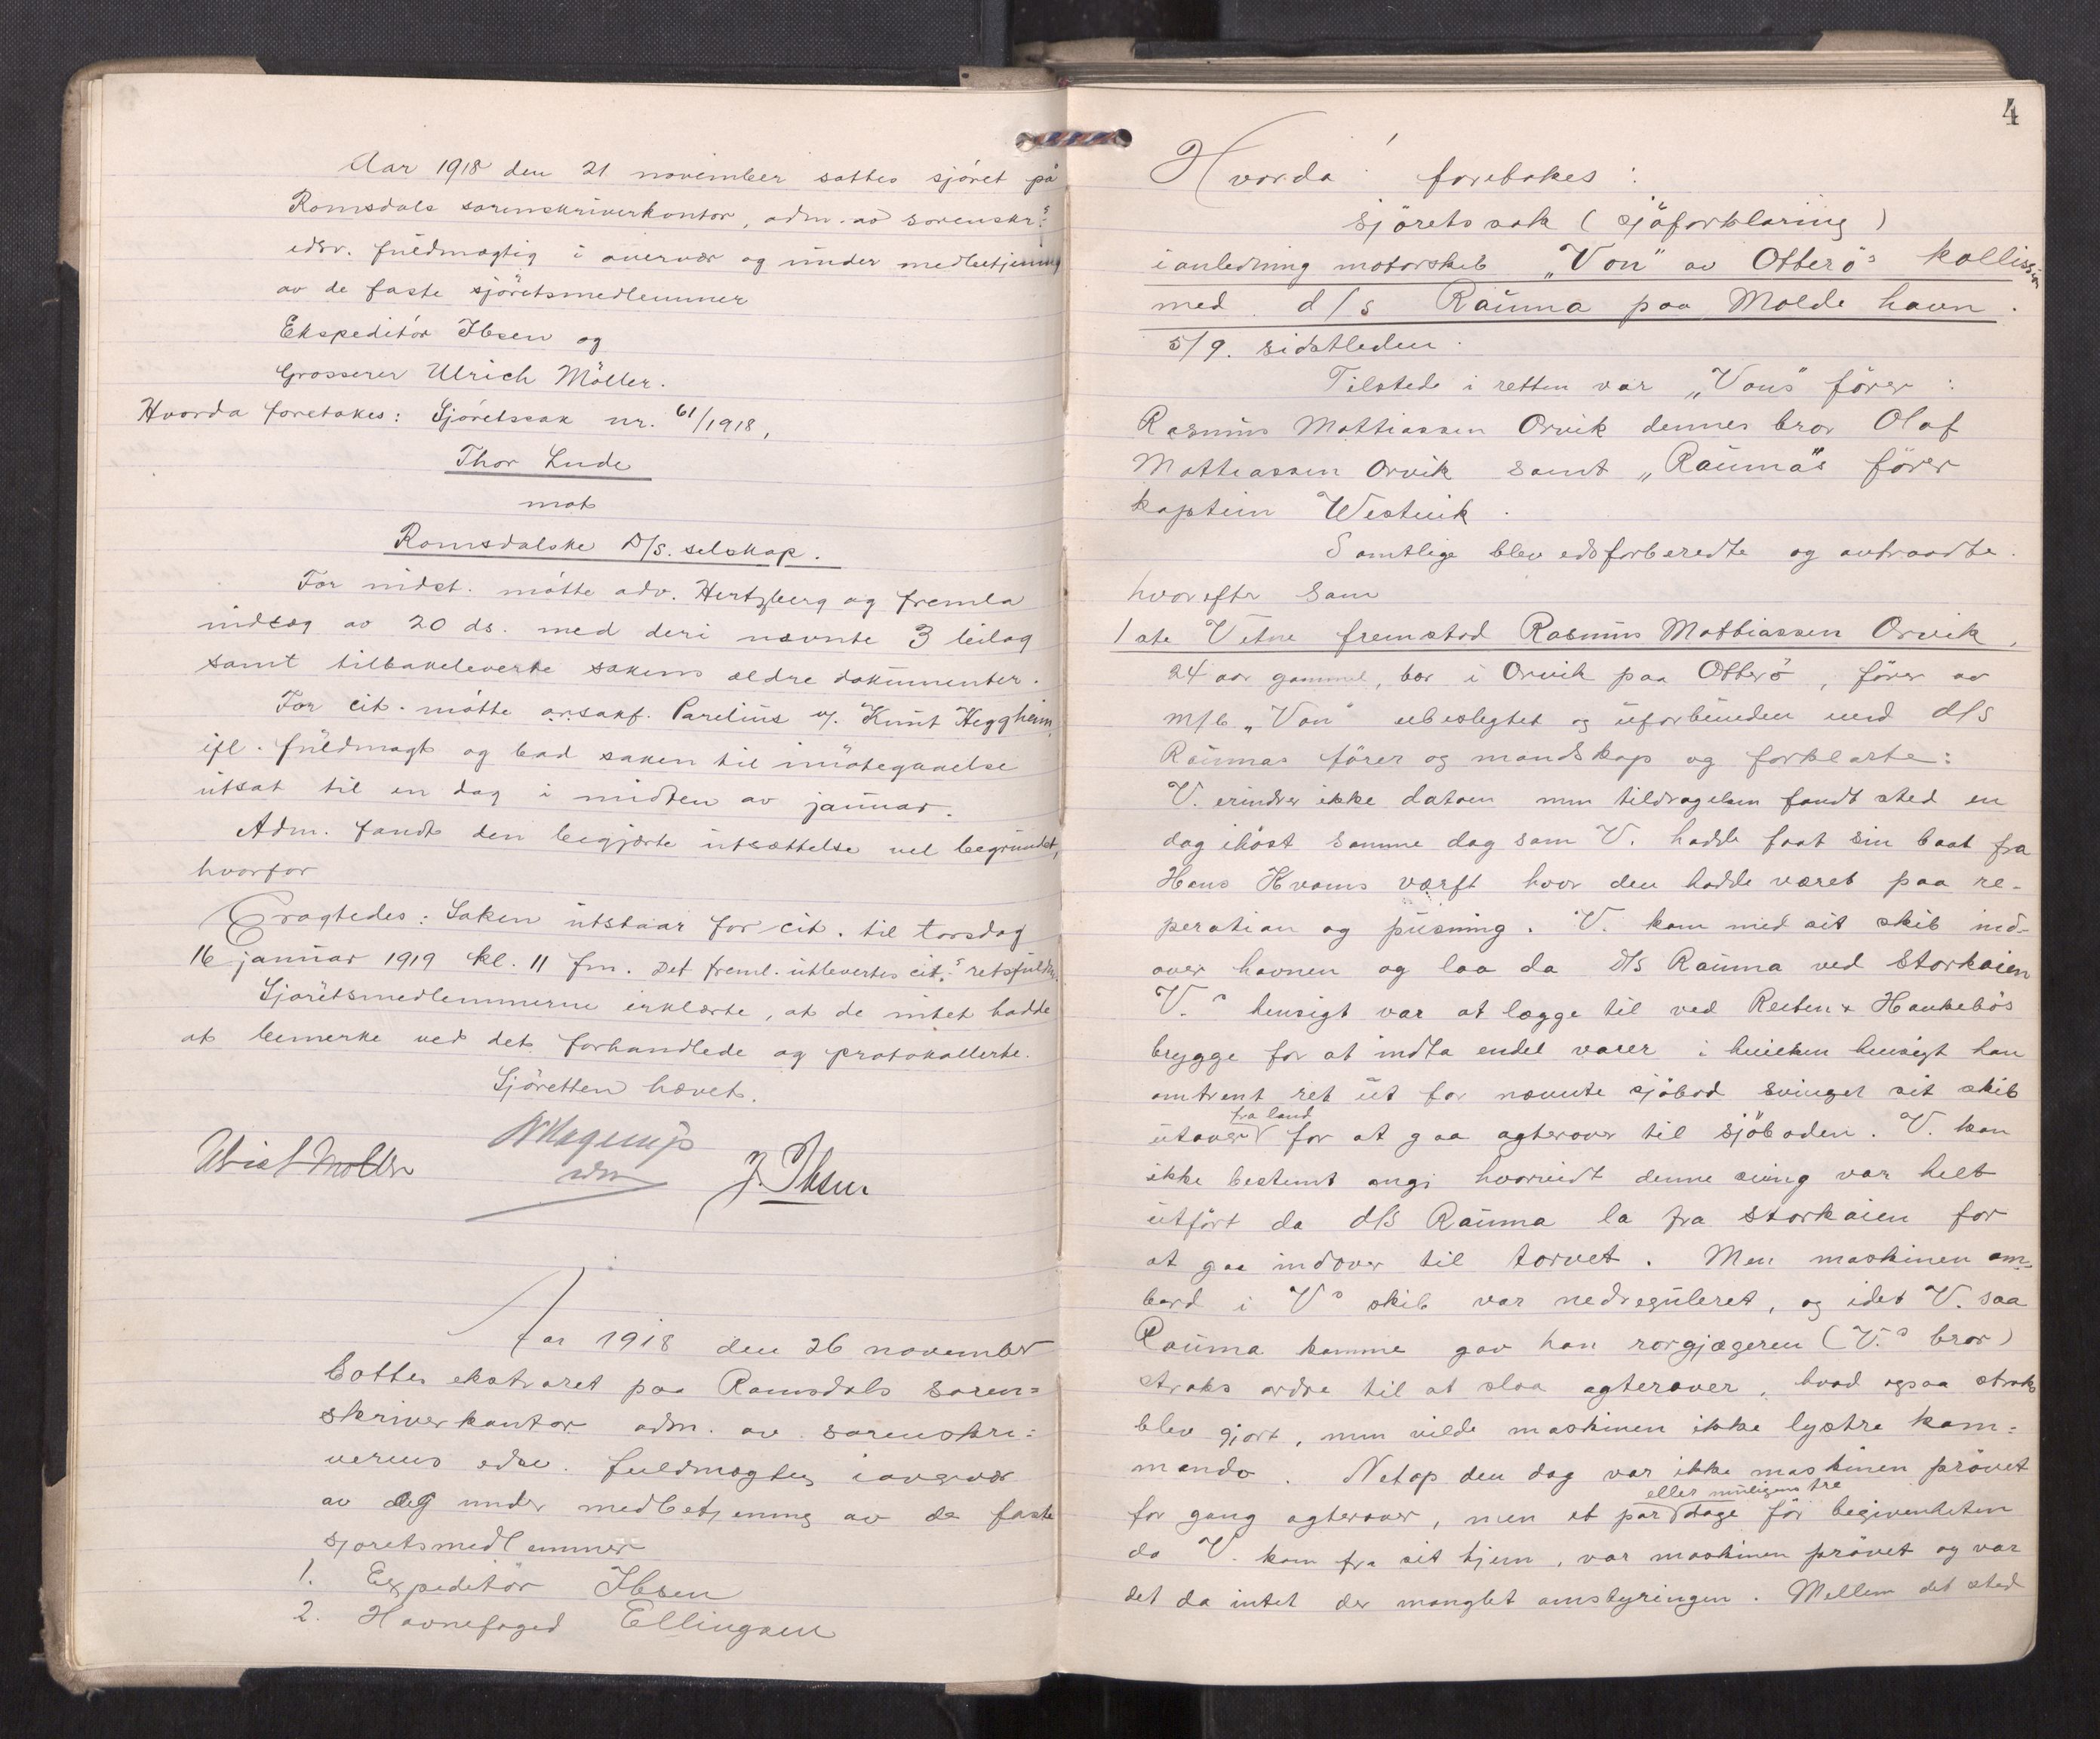 Aar 1918 den 21 november sattes sjöret på
Romsdals sorenskriverkontor, adm. av sorenskr.s
edsv. fuldmægtig i overvær og under medbetjening
av de faste sjöretsmedlemmer
Ekspeditör Ibsen og
Grosserer Ulrich Möller.
Hvorda foretokes: Sjöretssak nr. 61/1918,
Thor Lude
mot
Romsdalske D/S. selskap.
For indst. mötte adv. Hertzberg og fremla
indlæg av 20 ds. med deri nævnte 3 bilag
samt tilbakeleverte sakens ældre dokumenter.
For cit. mötte o.r.sakf. Parelius v/. Knut Heggheim
ifl. fuldmagt og bad saken til imötegaaelse
utsat til en dag i midten av januar.
Adm. fandt den begjærte utsættelse vel begrundet,
hvorfor
Eragtedes: Saken utstaar for cit. til torsdag
16 januar 1919 kl. 11 fm. Det freml. utlevertes cit.s retsfuldm.
Sjöretsmedlemmerne erklærte, at de intet hadde
at bemerke ved det forhandlede og protokollerte.
Sjöretten hævet.
Ulrich Möller
Hagerup
adm
J. Ibsen
Aar 1918 den 26 november
sattes ekstraret paa Romsdals soren=
skriverkontor adm. av sorenskri=
verens edsv. fuldmægtig i overvær
av og under medbetjening av de faste
sjöretsmedlemmer
1. Expeditör Ibsen
2. Havnefoged Ellingsen
4
Hvorda foretokes:
sjöretssak (sjöforklaring)
i anledning motorskib "Von" av Otterö's kollission
med d/s Rauma paa Molde havn.
5/9. sidstleden.
Tilstede i retten var "Von's" förer:
Rasmus Mattiassen Orvik dennes bror Olaf
Mattiassen Orvik samt "Rauma"s förer
kaptein Westvik.
Samtlige blev edsforberedte og avtraadte.
hvorefter som
1ste Vitne fremstod Rasmus Mattiassen Orvik,
24 aar gammel, bor i Orvik paa Otterö, förer av
m/b "Von" ubeslegtet og uforbunden med d/s
Raumas förer og mandskap og forklarte:
V. erindrer ikke datoen men tildragelsen fandt sted en
dag ihöst samme dag som V. hadde faat sin baat fra
Hans Kvams værft hvor den hadde været paa re-
peration og pusning. V. kom med sit skib ind-
over havnen og laa da d/s Rauma ved Storkaien
V.s hensigt var at lægge til ved Reiten & Haukebös
brygge for at indta endel varer i hvilken hensigt han
omtrent ret ut for nævnte sjöbod svinget sit skib
utover fra land for at gaa agterover til sjöboden. V. kan
ikke bestemt angi hvorvidt denne sving var helt
utfört da d/s Rauma la fra storkaien for
at gaa indover til torvet. Men maskinen om-
bord i V.s skib var nedreguleret, og idet V. saa
Rauma komme gav han rorgjægeren (V.s bror)
straks ordre til at slaa agterover, hvad ogsaa straks
blev gjort, men vilde maskinen ikke lystre kom=
mando. Netop den dag var ikke maskinen prövet
for gang agterover, men et par eller muligens tre dage för begivenheten
da V. kom fra sit hjem, var maskinen prövet og var
det da intet der manglet omstyringen. Mellem det sted